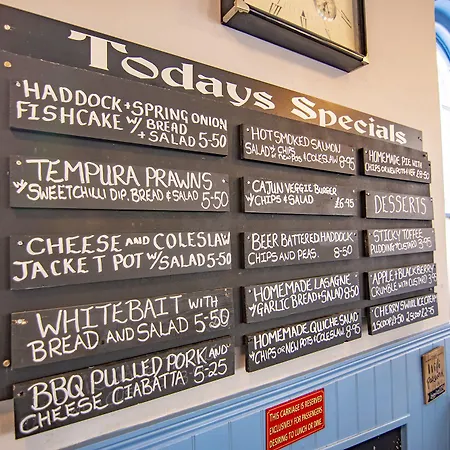 Todays Specials
HADDOCK + SPRING ONION
FISHCAKE W/ BREAD
+ SALAD 5-50
TEMPURA PRAWNS
W/ SWEETCHILLI DIP, BREAD & SALAD 5-50
CHEESE AND COLESLAW
JACKET POT W/ SALAD 5-50
WHITEBAIT WITH
BREAD AND SALAD 5-50
BBQ PULLED PORK AND
CHEESE CIABATTA 5-25
HOT SMOKED SALMON
SALAD W/ CHIPS
NEW POTS & COLESLAW 8-95
CAJUN VEGGIE BURGER
W/ CHIPS & SALAD £6-95
BEER BATTERED HADDOCK
CHIPS AND PEAS. 8-50
HOMEMADE LASAGNE
W/ GARLIC BREAD & SALAD 8-50
HOMEMADE QUICHE SALAD
W/ CHIPS OR NEW POTS & COLESLAW 8-95
HOMEMADE PIE WITH
CHIPS OR NEW POTS & VEG £8-50
DESSERTS
STICKY TOFFEE
PUDDING & CUSTARD 3-95
APPLE & BLACKBERRY
CRUMBLE WITH CUSTARD 3-95
CHERRY SWIRL ICECREAM
1 SCOOP £1-50 2 SCOOPS £2-50
THIS CARRIAGE IS RESERVED
EXCLUSIVELY FOR PASSENGERS
DESIRING TO LUNCH OR DINE.